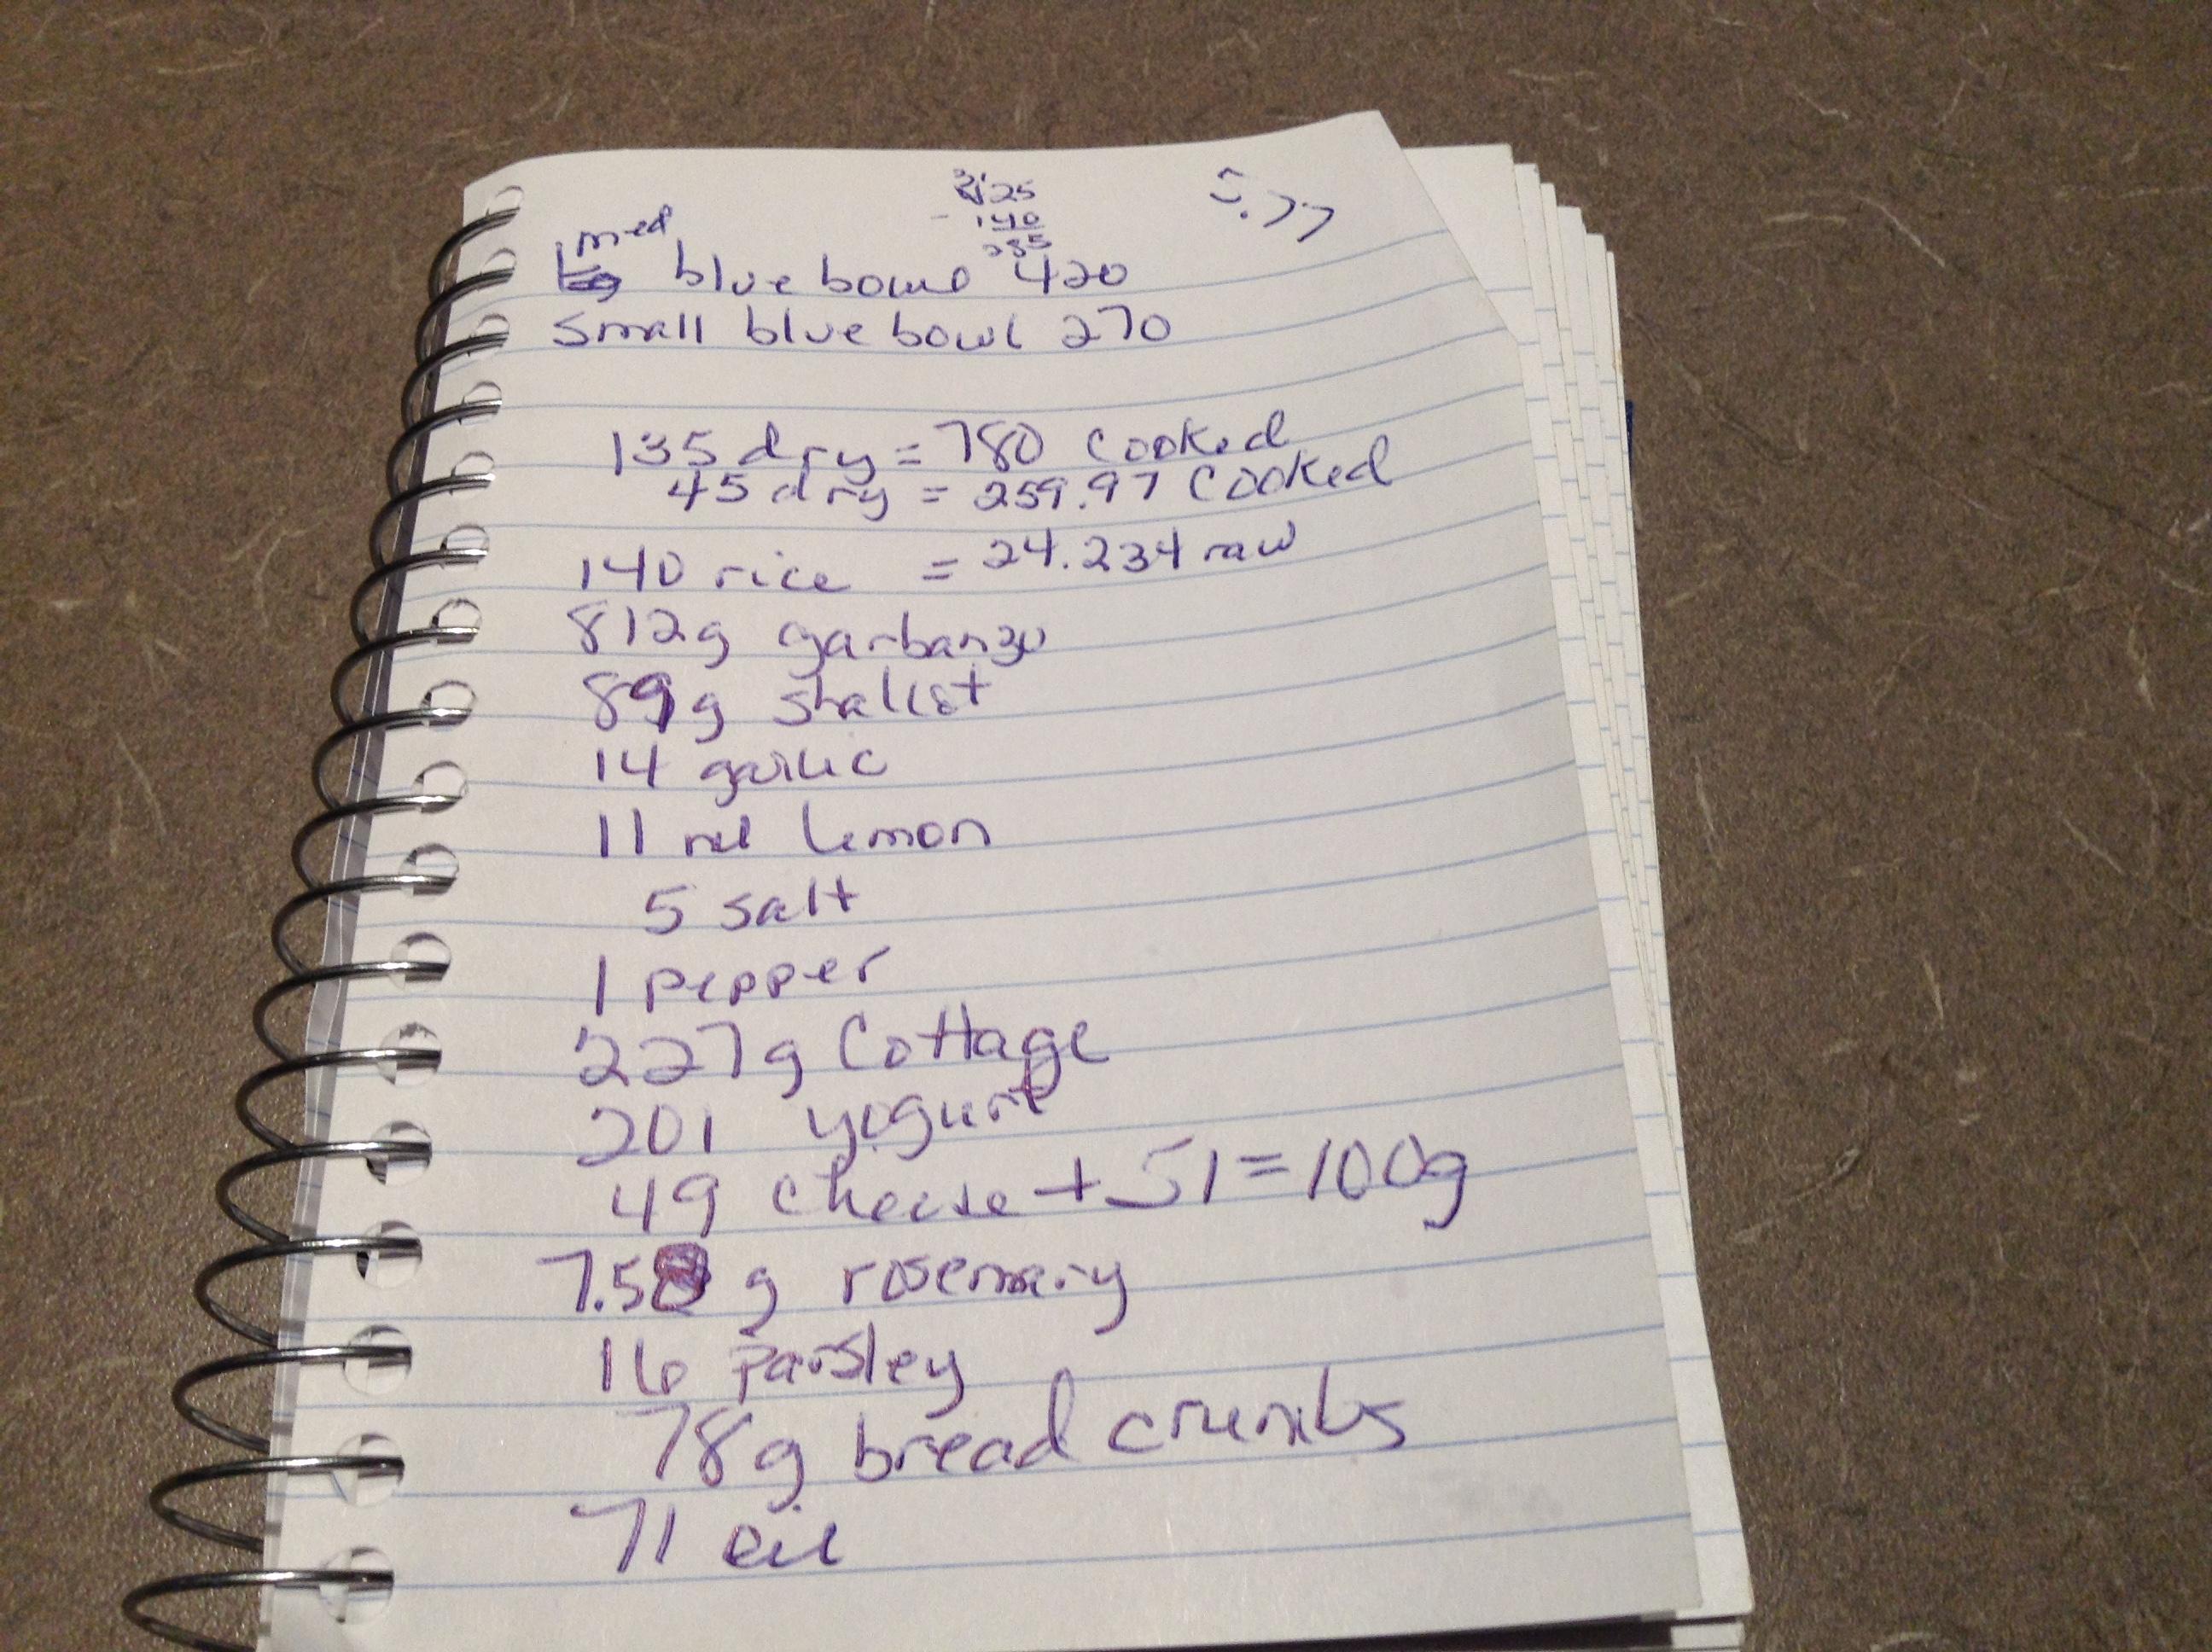 425
- 140
285
5.77
med
blue bowl 420
small blue bowl 270
135 dry = 780 cooked
45 dry = 259.97 cooked
140 rice = 24.234 raw
812g garbanzo
89g shallot
14 garlic
11 ml lemon
5 salt
1 pepper
227g Cottage
201 yogurt
49 cheese + 51 = 100g
7.5 g rosemary
16 parsley
78g bread crumbs
71 oil